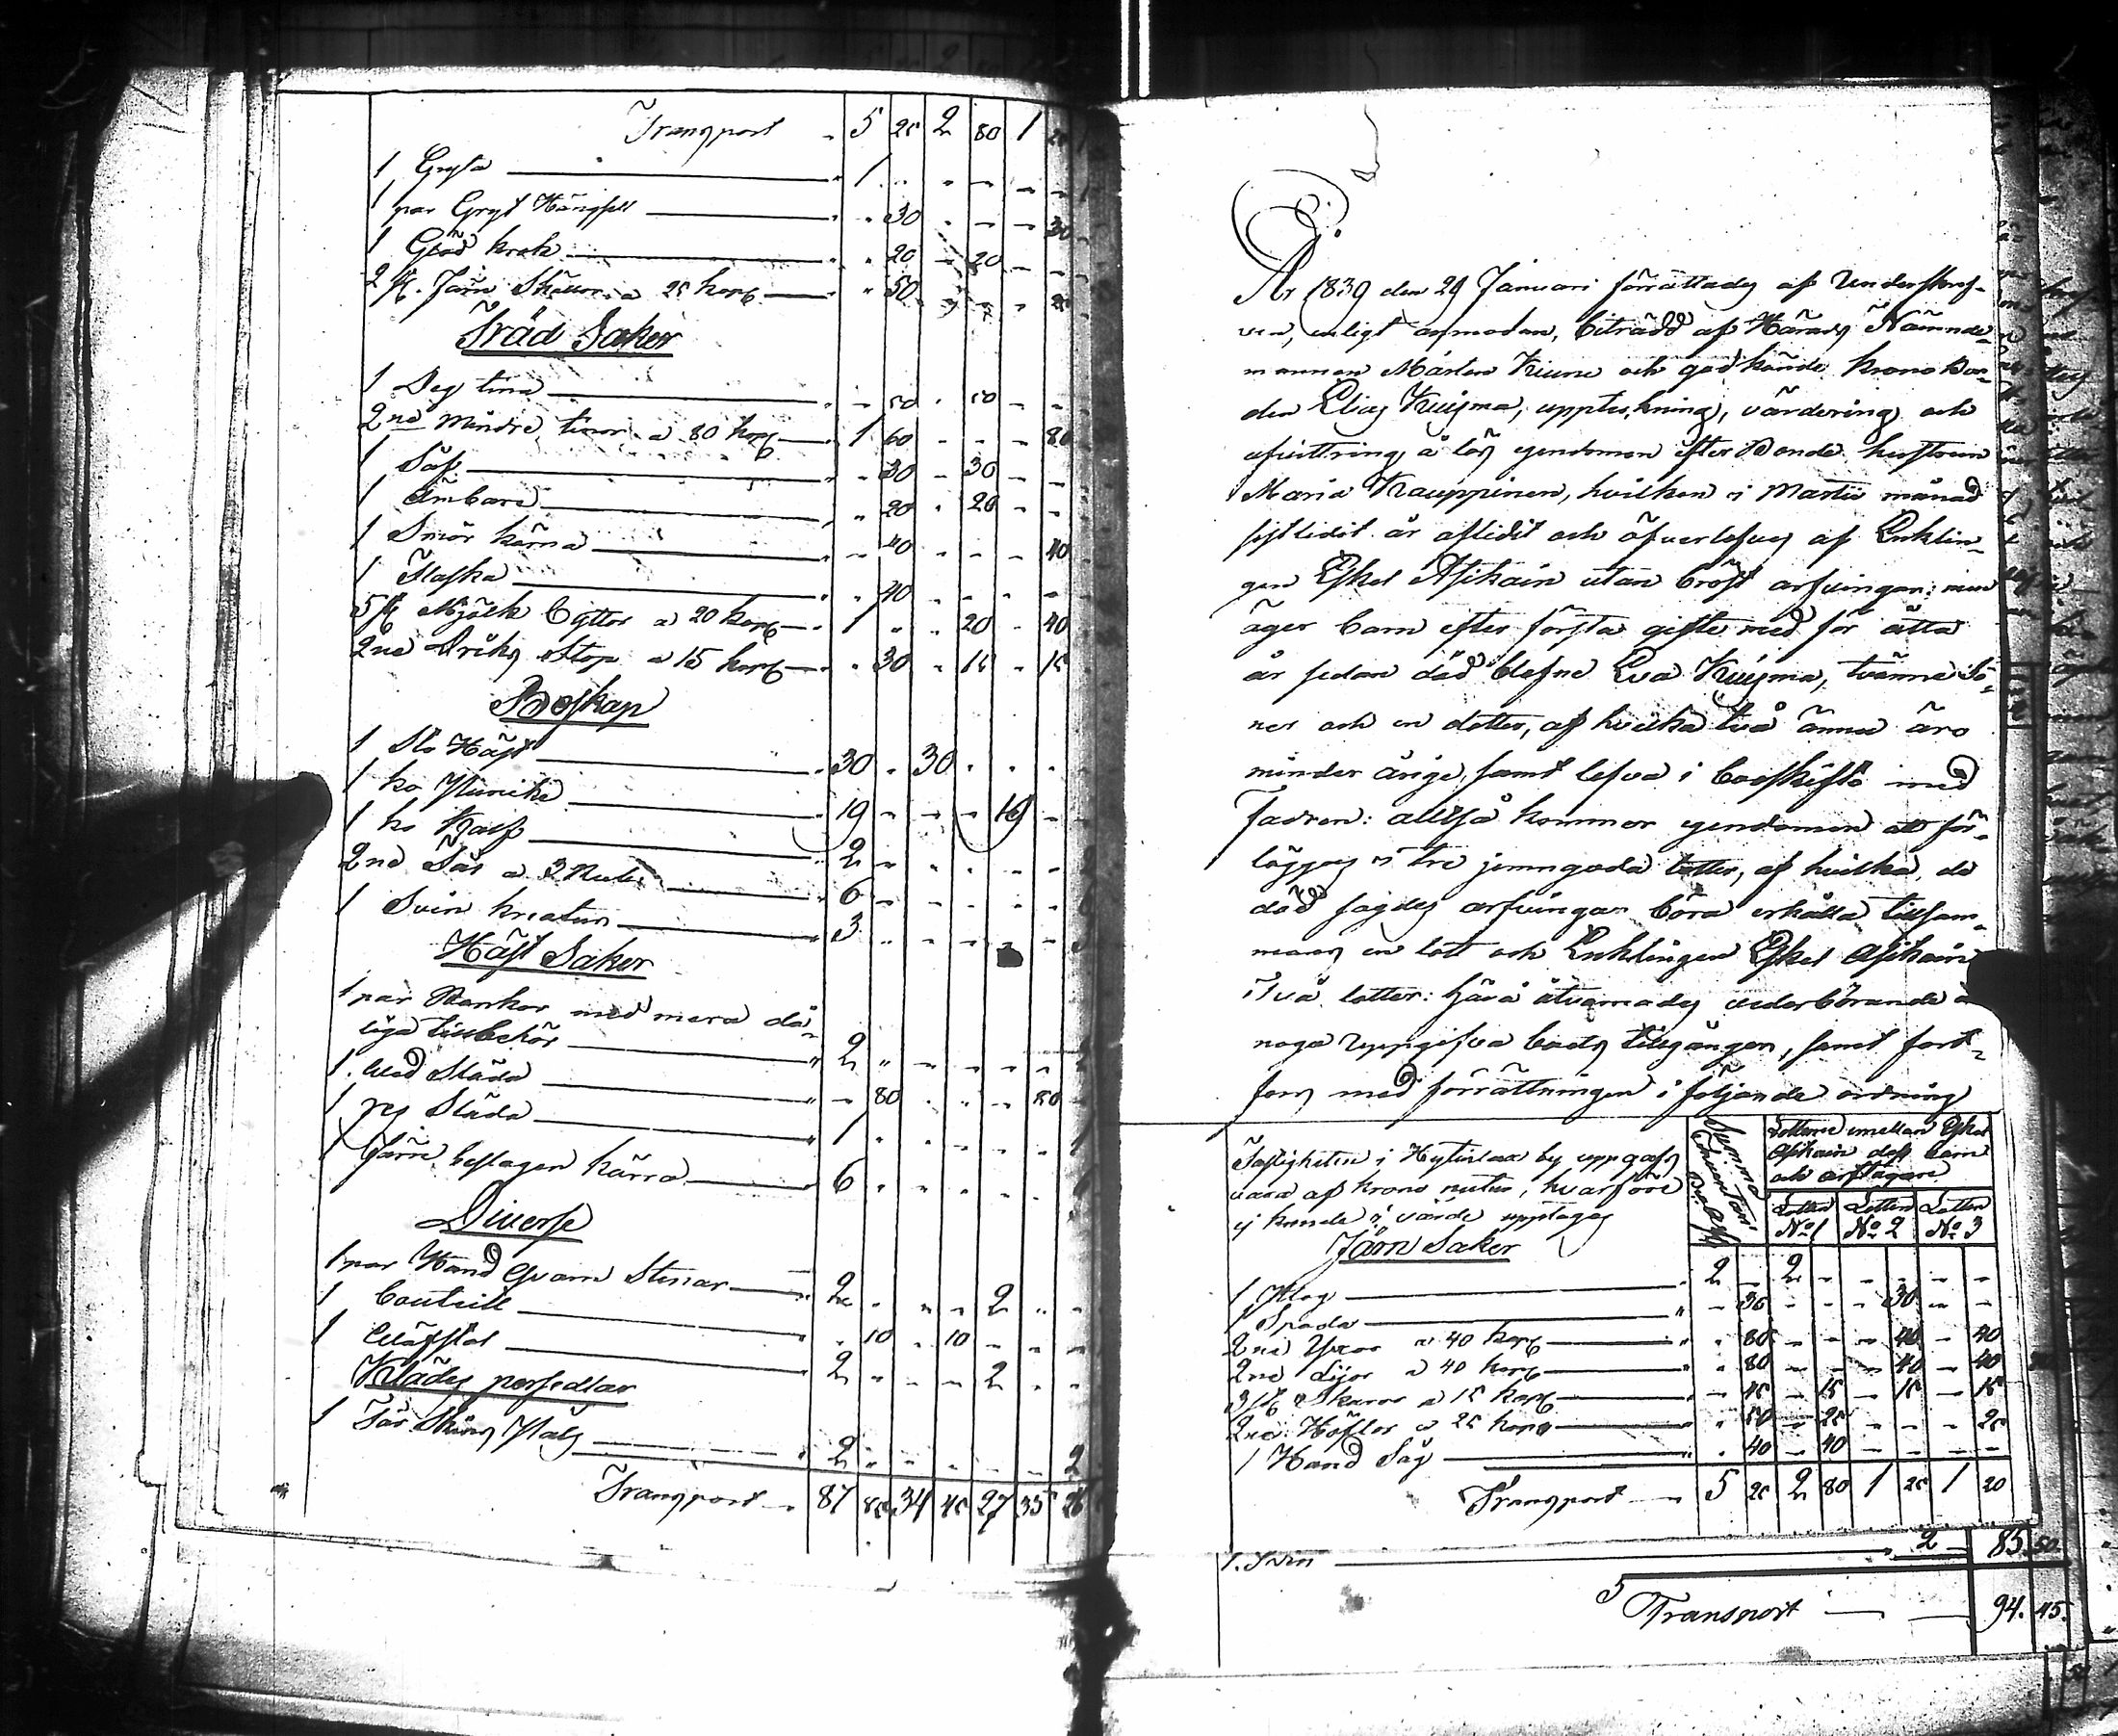 Transport " 5 25 2 80 1 20
1 Gryta " 1 " " – – –
1 par Gryt Hängsell " " 30 " – – 30
1 Glöd krok " " 20 – 20 – –
2 st. Järn Skållor a 25 kop " " 50
Träd Saker
1 Deg tina " – 50 " 50 – –
2ne mindre tinor a 80 kop " 1 60 – – – 80
1 Såf " – 30 – 30 – –
1 Ämbare " " 20 " 20 – –
1 Smör kärna " – 40 – – – 40
1 Flaska " " 40 – – – –
5 st Mjölk byttor a 20 kop " 1 " " 20 " 40
2ne Dricks Stop a 15 kop " " 30 " 15 " 15
Boskap
1 Sto Häst " 30 " 30 " " "
1 ko " 19 – – – 19 –
1 ko Kalf " 2 " " " – –
2ne Får a 3 Rub. " 6 – – – – –
1 Svin kreatur " 3 " – – –
Häst Saker
1 par Rankor med mera då-
liga tillbehör " 2 " – – – –
1 Ved Släda " – 80 " " – 80
1 res Släda " 1 " – – – –
1 Järn beslagen kärra " 6 " " " " "
Diverse
1 par Hand Qvarn Stenar " 2 " " – 2 " –
1 Bouteill " " 10 " 10 – – –
1 Wäfstol " 2 " – – 2 " "
Klädes persedlar
1 Får Skins Päls " 2 " – – – – 2
Transport " 87 85 34 45 27 35 26
År 1839 den 29 Januari förrättades af Underskref-
ven, enligt anmodan, biträdd af Härads Nämnde-
mannen Mårten Kiuru och godkände krono Bon-
den Elias Kuisma, uppteckning, värdering och
afvittring å lös egendomen efter Bonde hustrun
Maria Kauppinen, hvilken i Martii månad
sistledit år aflidit och öfverlefves af Enklin-
gen Eskel Asikain utan bröst arfvingar; men
äger barn efter första giftet med för åtta
år sedan död blefne Eva Kuisma, tvänne Sö-
ner och en dotter, af hvilka två ännu äro
minder årige, samt lefva i boskifto med
Fadren: alltså kommer egendomen att för-
läggas i tre jemngoda lotter, af hvilka, de
död sagdes arfvingar böra erhålla tillsam-
mans en lott och Enklingen Eskel Asikain
Två lotter: hjävå åtvarnades vederbörande a
noga uppgifva boets tillgångar, samt fort-
fors med förrättningen i följande ordning
Fastigheten i Hytinlax by uppgafs
vara af krono natur, hvarföre
ej kunde i värde upptagas
Summa Inventarii
Lotterne emellan Eskel
Asikain dess barn
och arftagare
Lotten No 1 Lotten No 2 Lotten No 3
Järn Saker
1 Plog " 2 – 2 – – – – –
1 Spada " – 30 – – – 30 – –
2ne Yxor a 40 kop " " 80 – – – 40 – 40
2ne Lijor a 40 kop " " 80 – – – 40 – 40
3 st Skäror a 15 kop – 45 – 15 – 15 – 15
2ne Höflor a 25 kop " " 50 – 25 – – – 25
1 Hand Såg " " 40 – 40 – – – –
Transport " 5 25 2 80 1 25 1 20
1. Svin 2 – 85. 50.
Transport — — 94. 45.